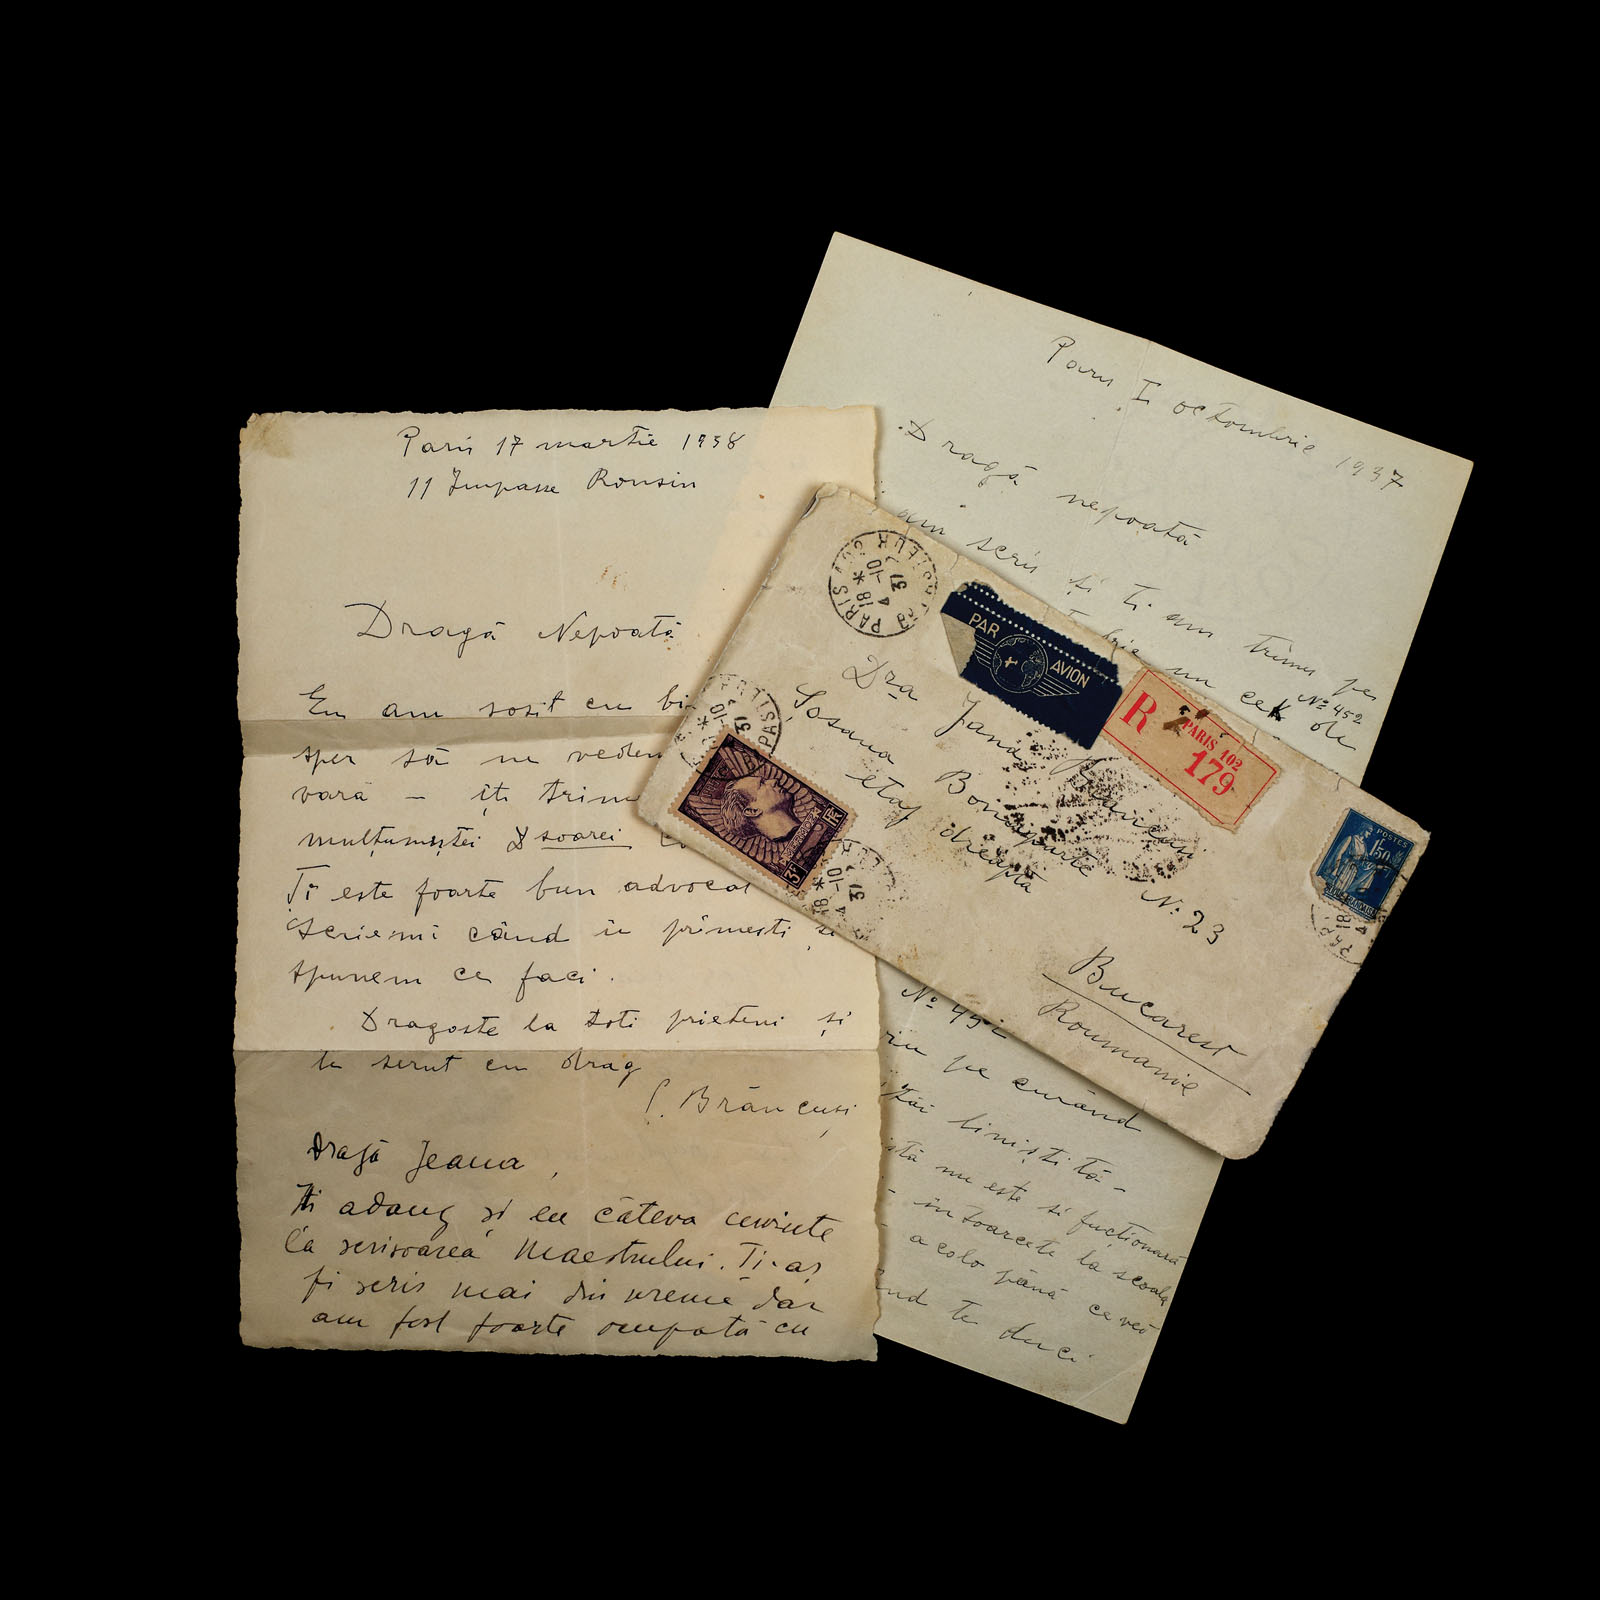 Paris 17 martie 1938
11 Impasse Ronsin
Dragă Nepoată
Eu am sosit cu bi
sper să ne vedem
vară — îți trim
mulțumiștei D soarei
Ti este foarte bun advocat
Scriemi când ie primesti si
spunem ce faci.
Dragoste la toti prieteni și
te serut cu drag
C. Brâncuși
Dragă Jeana,
Iti adaug si eu câteva cuvinte
la scrisoarea Maestrului. Ti-aș
fi scris mai din vreme dar
am fost foarte ocupată cu
Paris I octombrie 1937
Dragă nepoată
am scris și ti am trimis pe
un cek de
No 452
No 451
pe curând
liniști tă —
nu este si fucționară
— intoarcete la scoala
acolo până ce vei
te duci
PAR AVION
R PARIS 102
179
Dra Jana Brancusi
Șosaua Bonaparte No 23
etaj dreapta
Bucarest
Roumanie
PARIS
18*
4-10
37
3F
RF
POSTES
1F50